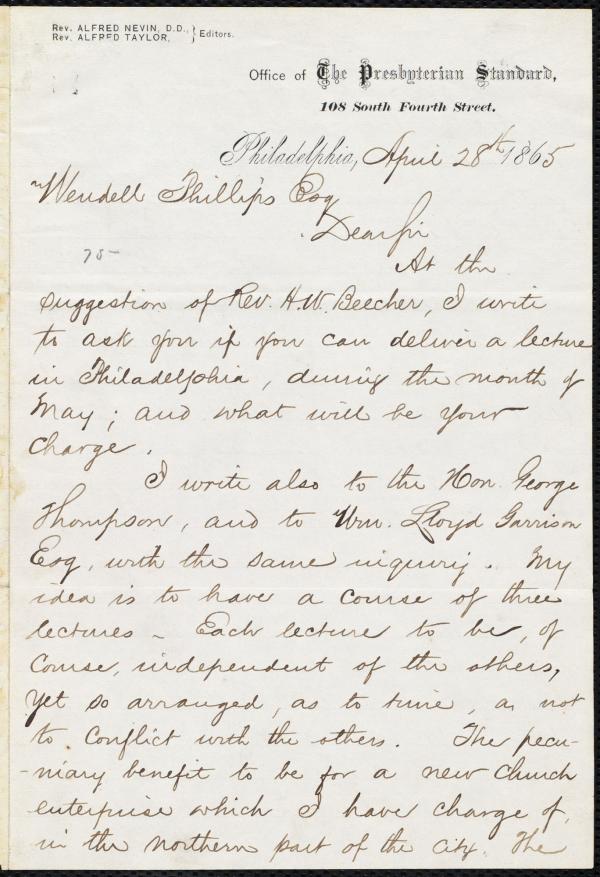 Rev. ALFRED NEVIN, D.D.,
Rev. ALFRED TAYLOR, } Editors.
Office of The Presbyterian Standard,
108 South Fourth Street.
Philadelphia, April 28th 1865
Wendell Phillips Esq
Dear Sir
75-
At the
suggestion of Rev. H.W. Beecher, I write
to ask you if you can deliver a lecture
in Philadelphia, during the month of
May; and what will be your
charge.
I write also to the Hon. George
Thompson, and to Wm. Lloyd Garrison
Esq, with the same inquiry. My
idea is to have a course of three
lectures - Each lecture to be, of
course, independent of the others,
yet so arranged, as to time, as not
to conflict with the others. The pecu-
-niary benefit to be for a new church
enterprise which I have charge of,
in the northern part of the city. The